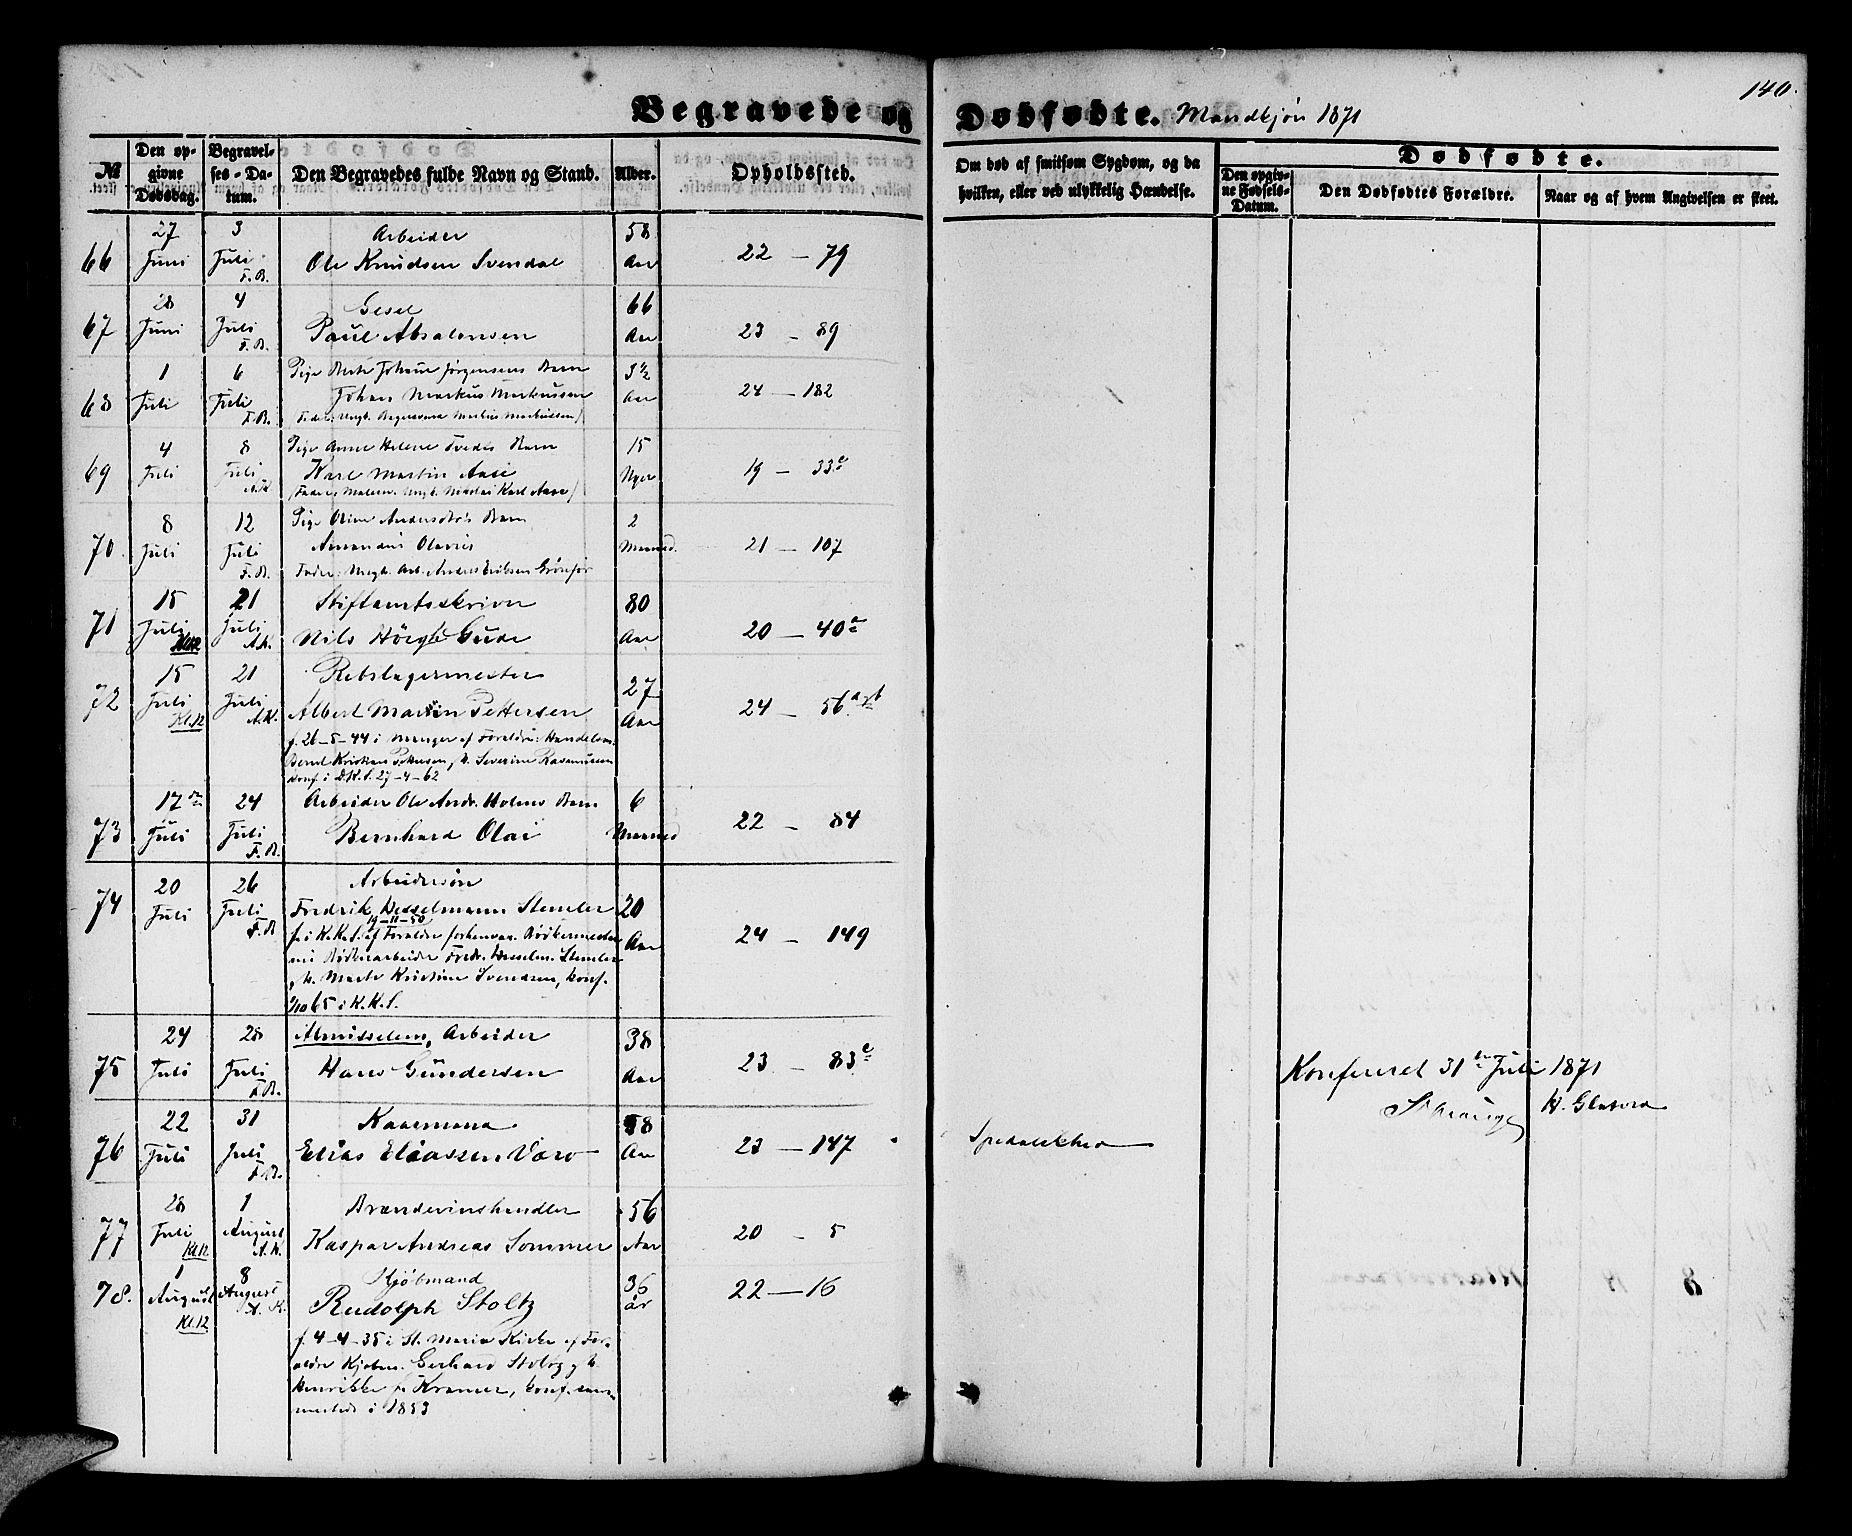 140.
Begravede og Dødfødte. Mandkjøn 1871
№
Den opgivne Dødsdag.
Begravelses-Datum.
Den Begravedes fulde Navn og Stand.
Alder.
Opholdssted.
Om død af smitsom Sygdom, og da hvilken, eller ved ulykkelig Hændelse.
Dødfødte.
Den opgivne Fødsels-Datum.
Den Dødfødtes Forældre.
Naar og af hvem Angivelsen er skeet.
66 27 Juni 3 Juli F.B. Arbeider 58 Aar 22 – 79
Ole Knudsen Svendal
67 28 Juni 4 Juli F.B. Gesel 66 Aar 23 – 89
Paul Absalonsen
68 1 Juli 6 Juli F.B. Pige Berthe Johanne Jørgensens Barn 3½ Aar 24 – 182
Johan Markus Markussen
69 4 Juli 8 Juli A.K. Pige Anne Helene Tvedts Barn 15 Uger 19 – 33c
Karl Martin Aase
(Fader: Malersv. Ungk. Nikolai Karl Aase)
70. 8 Juli 12 Juli F.B. Pige Oline Andersdtrs Barn 2 Maaned. 21 – 107
Amandus Olavius
Fader: Ungk. Arb. Anders Eriksen
71 15 Juli Kl.12 21 Juli A.K. Stiftamtsskriver 80 Aar 20 – 40a
Nils Höegh Gude
72 15 Juli Kl.12 21 Juli A.K. Rebslagermester 27 Aar 24 – 56 a–b
Albert Martin Pettersen
f. 26–5–44 i Manger af Forældre: Handelsm.
Bernt Kristian Pettersen, og h. Severine Rasmussen
konf. i D.K.S. 27–4–62
73 17de Juli 24 Juli F.B. Arbeider Ole Andr. Holmes Barn 6 Maaned 22 – 84
Bernhard Olai
74 20 Juli 26 Juli F.B. Arbeidersøn 20 Aar 24 – 149
Fredrik Wesselmann Stemler
19–11–50
f. i K.K.S. af Forældre forhenvær. Bødkermester
nu Bødkerarbeider Fredr. Wesselm. Stemler
og h. Marte Kristine Svendsen, konf.
65 i K.K.S.
75 24 Juli 28 Juli F.B. Almisselem, Arbeider 38 Aar 23 – 83c
Hans Gundersen
Konfereret 31te Juli 1871
76 22 Juli 31 Juli F.B. Kaarmand 58 Aar 23 – 147 Spedalskhed
Elias Eliassen Værø
77 28 Juli Kl.12 1 August A.K. Brændevinshandler 56 Aar 20 – 5
Kaspar Andreas Sommer
78. 1 August Kl.12 8 August A.K. Kjöbmand 36 år 22 – 16
Rudolph Stoltz
f. 4–4–35 i St. Maria Kirke af For-
ældre Kjøbm. Gerhard Stoltz og h.
Henrikke f. Kramer, konf. sam-
mesteds i 1853